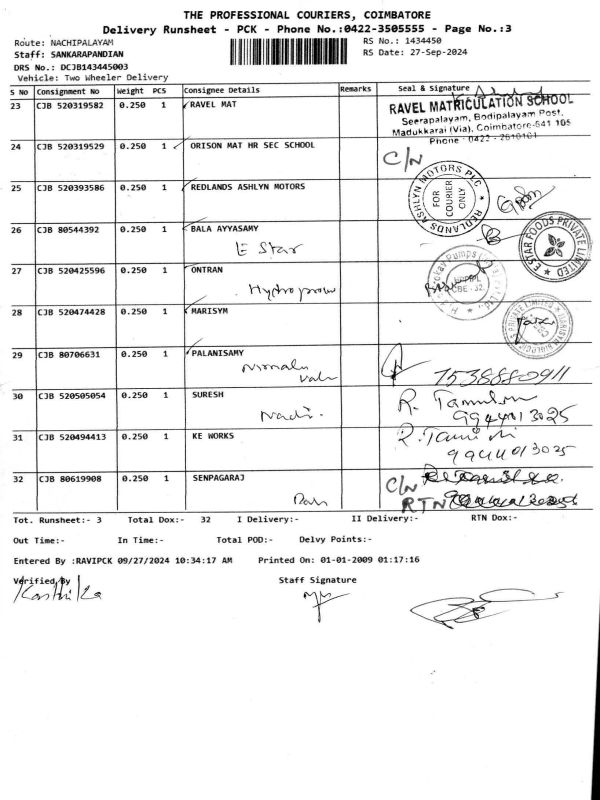 THE PROFESSIONAL COURIERS, COIMBATORE
Delivery Runsheet - PCK - Phone No.:0422-3505555 - Page No.:3
Route: NACHIPALAYAM RS No.: 1434450
Staff: SANKARAPANDIAN RS Date: 27-Sep-2024
DRS No.: DCJB143445003
Vehicle: Two Wheeler Delivery
S No Consignment No Weight PCS Consignee Details Remarks Seal & Signature
23 CJB 520319582 0.250 1 RAVEL MAT
RAVEL MATRICULATION SCHOOL
Seerapalayam, Bodipalayam Post,
Madukkarai (Via), Coimbatore-641 105
Phone : 0422 - 2610101
24 CJB 520319529 0.250 1 ORISON MAT HR SEC SCHOOL C/N
25 CJB 520393586 0.250 1 REDLANDS ASHLYN MOTORS
REDLANDS ASHLYN MOTORS PLC
FOR COURIER ONLY
26 CJB 80544392 0.250 1 BALA AYYASAMY
E Star
E STAR FOODS PRIVATE LIMITED
27 CJB 520425596 0.250 1 ONTRAN
Hydroprow
28 CJB 520474428 0.250 1 MARISYM
29 CJB 80706631 0.250 1 PALANISAMY
7538880911
30 CJB 520505054 0.250 1 SURESH
9944013025
31 CJB 520494413 0.250 1 KE WORKS
9944013025
32 CJB 80619908 0.250 1 SENPAGARAJ C/N
RTN
Tot. Runsheet:- 3 Total Dox:- 32 I Delivery:- II Delivery:- RTN Dox:-
Out Time:- In Time:- Total POD:- Delvy Points:-
Entered By :RAVIPCK 09/27/2024 10:34:17 AM Printed On: 01-01-2009 01:17:16
Verified By Staff Signature
Karthika